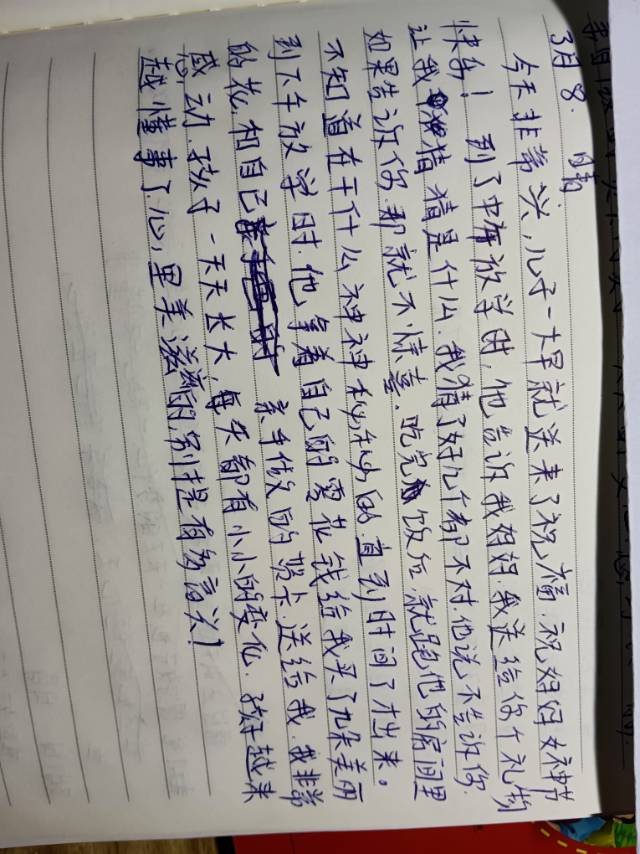 3月8. 晴
今天非常兴,儿子一大早就送来了祝福.祝妈妈女神节
快乐! 到了中午放学时,他告诉我妈妈.我送给你个礼物
让我猜猜是什么.我猜了好几个都不对.他说不告诉你.
如果告诉你.那就不惊喜.吃完饭后就跑他的房间里
不知道在干什么神神秘秘的直到时间了才出来。
到下午放学时.他拿着自己的零花钱给我买了九朵美丽
的花.和自己亲手做的贺卡.送给我.我非常
感动.孩子一天天长大,每天都有小小的变化.孩子越来
越懂事了.心里美滋滋的别提有多高兴!